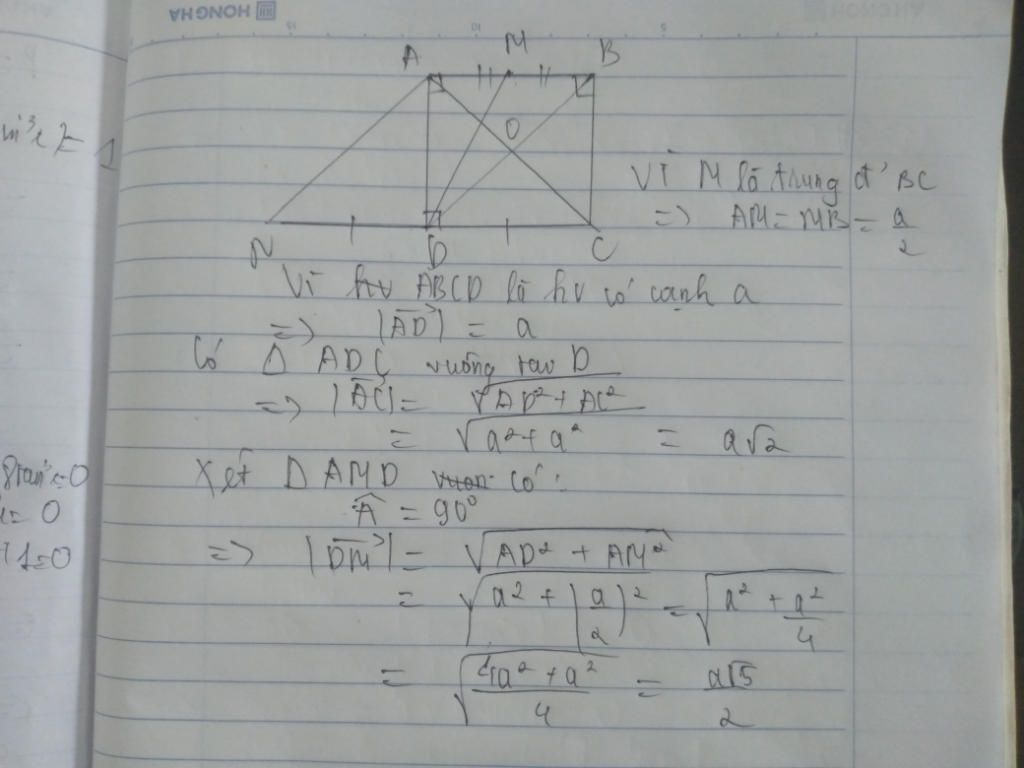 HONGHA
A M B
O
N D C
Vì M là trung đ' BC
=> AM = MB = a/2
Vì hv ABCD là hv có cạnh a
=> |AD| = a
Có Δ ADC vuông tại D
=> |AC| = √AD² + AC²
= √a² + a² = a√2
Xét Δ AMD vuôn có:
Â = 90°
=> |DM| = √AD² + AM²
= √a² + (a/2)² = √a² + a²/4
= √4a² + a²/4 = a√5/2
= 0
= 0